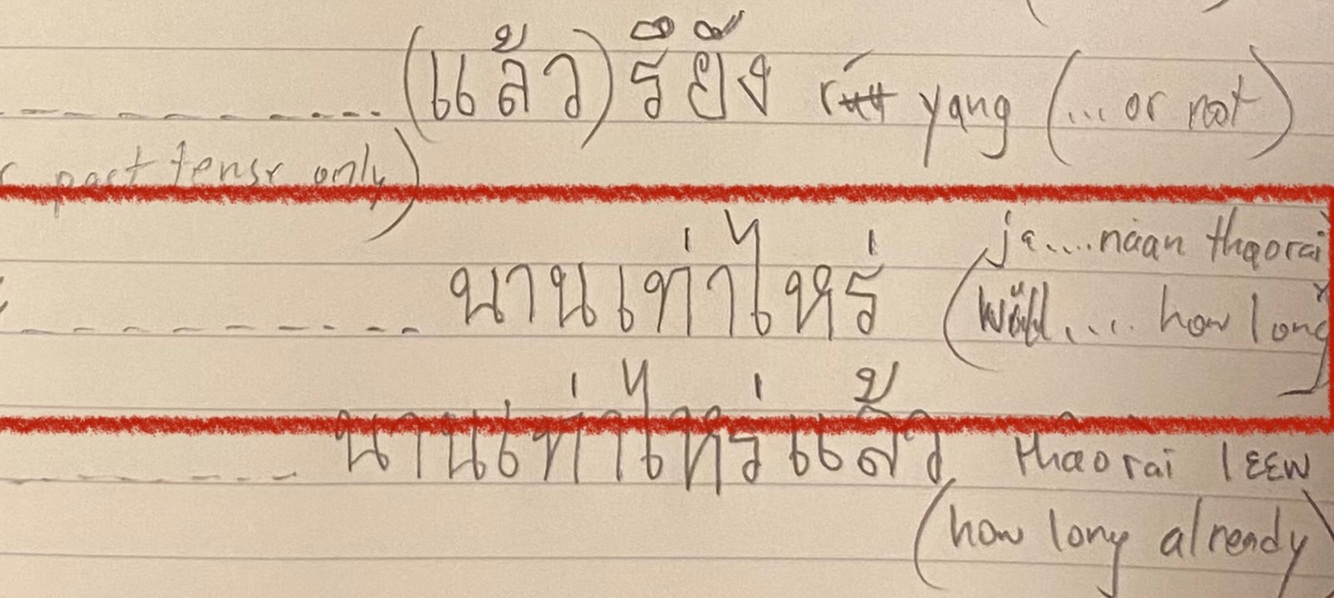 (แล้ว) รึยัง yang (... or not)
past tense only)
นานเท่าไหร่ ja.... naan thaorai
(will .... how long
นานเท่าไหร่แล้ว thaorai lɛɛw
(how long already)